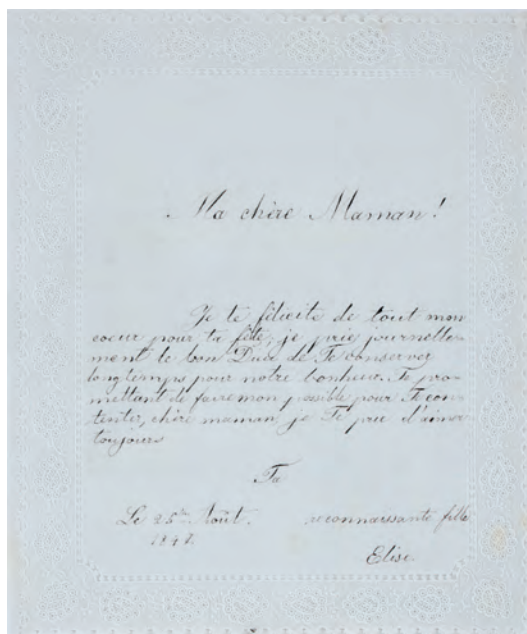 Ma chère Maman!
Je te félicite de tout mon
coeur pour ta fête, je prie journelle-
ment le bon Dieu de Te conserver
longtemps pour notre bonheur. Te pro-
mettant de faire mon possible pour Te con-
tenter, chère maman, je Te prie d'aimer
toujours
Ta
Le Août. reconnaissante fille
Elise.